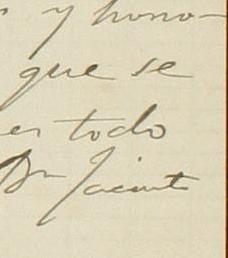 y hono-
que se
er todo
Dn Jacint